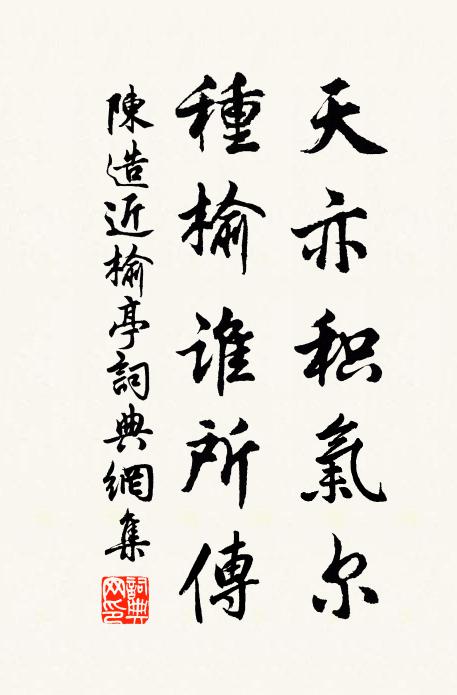 天亦积氣尔
種榆谁所傳
陳造近榆亭詞典網集
詞典网印